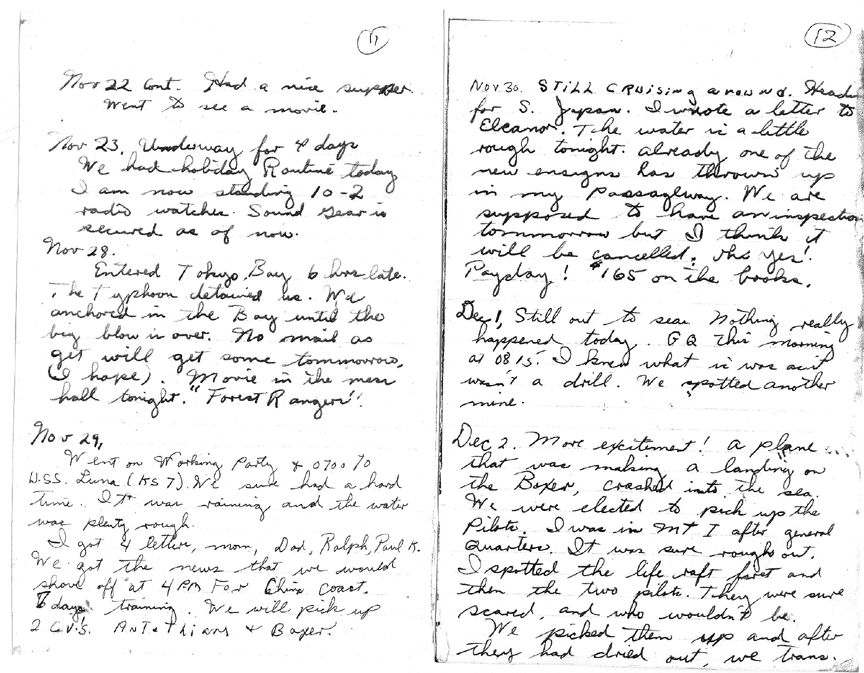 11
Nov 22 Cont. Had a nice supper.
Went to see a movie.
Nov 23. Underway for 4 days
We had holiday Routine today
I am now standing 10-2
radio watches. Sound Gear is
secured as of now.
Nov 28.
Entered Tokyo Bay 6 hrs late.
The Typhoon detained us. We
anchored in the Bay until the
big blow is over. No mail as
get will get some tommorrow,
(I hope). Movie in the mess
hall tonight. "Forest Rangers".
Nov 29,
Went on Working Party & 0700 To
U.S.S. Luna (KS7). We sure had a hard
time. It was raining and the water
was plenty rough.
I got 4 letters, mom, Dad, Ralph, Paul K.
We got the news that we would
shove off at 4 PM For China Coast.
6 days training. We will pick up
2 C.V.'s. Antethians & Boxer.
12
Nov 30. Still cruising around. Heading
for S. Japan. I wrote a letter to
Eleanor. The water is a little
rough tonight. already one of the
new ensigns has thrown up
in my passageway. We are
supposed to have an inspection
tommorrow but I think it
will be cancelled. Oh Yes!
Payday! $165 on the books.
Dec 1, Still out to sea. Nothing really
happened today. GQ This morning
at 0815. I knew what it was as it
wasn't a drill. We spotted another
mine.
Dec 2. More excitement! A plane
that was making a landing on
the Boxer, crashed into the sea.
We were elected to pick up the
Pilots. I was in MT I after general
quarters. It was sure rough out.
I spotted the life raft first and
then the two pilots. They were sure
scared, and who wouldn't be.
We picked them up and after
they had dried out, we trans.